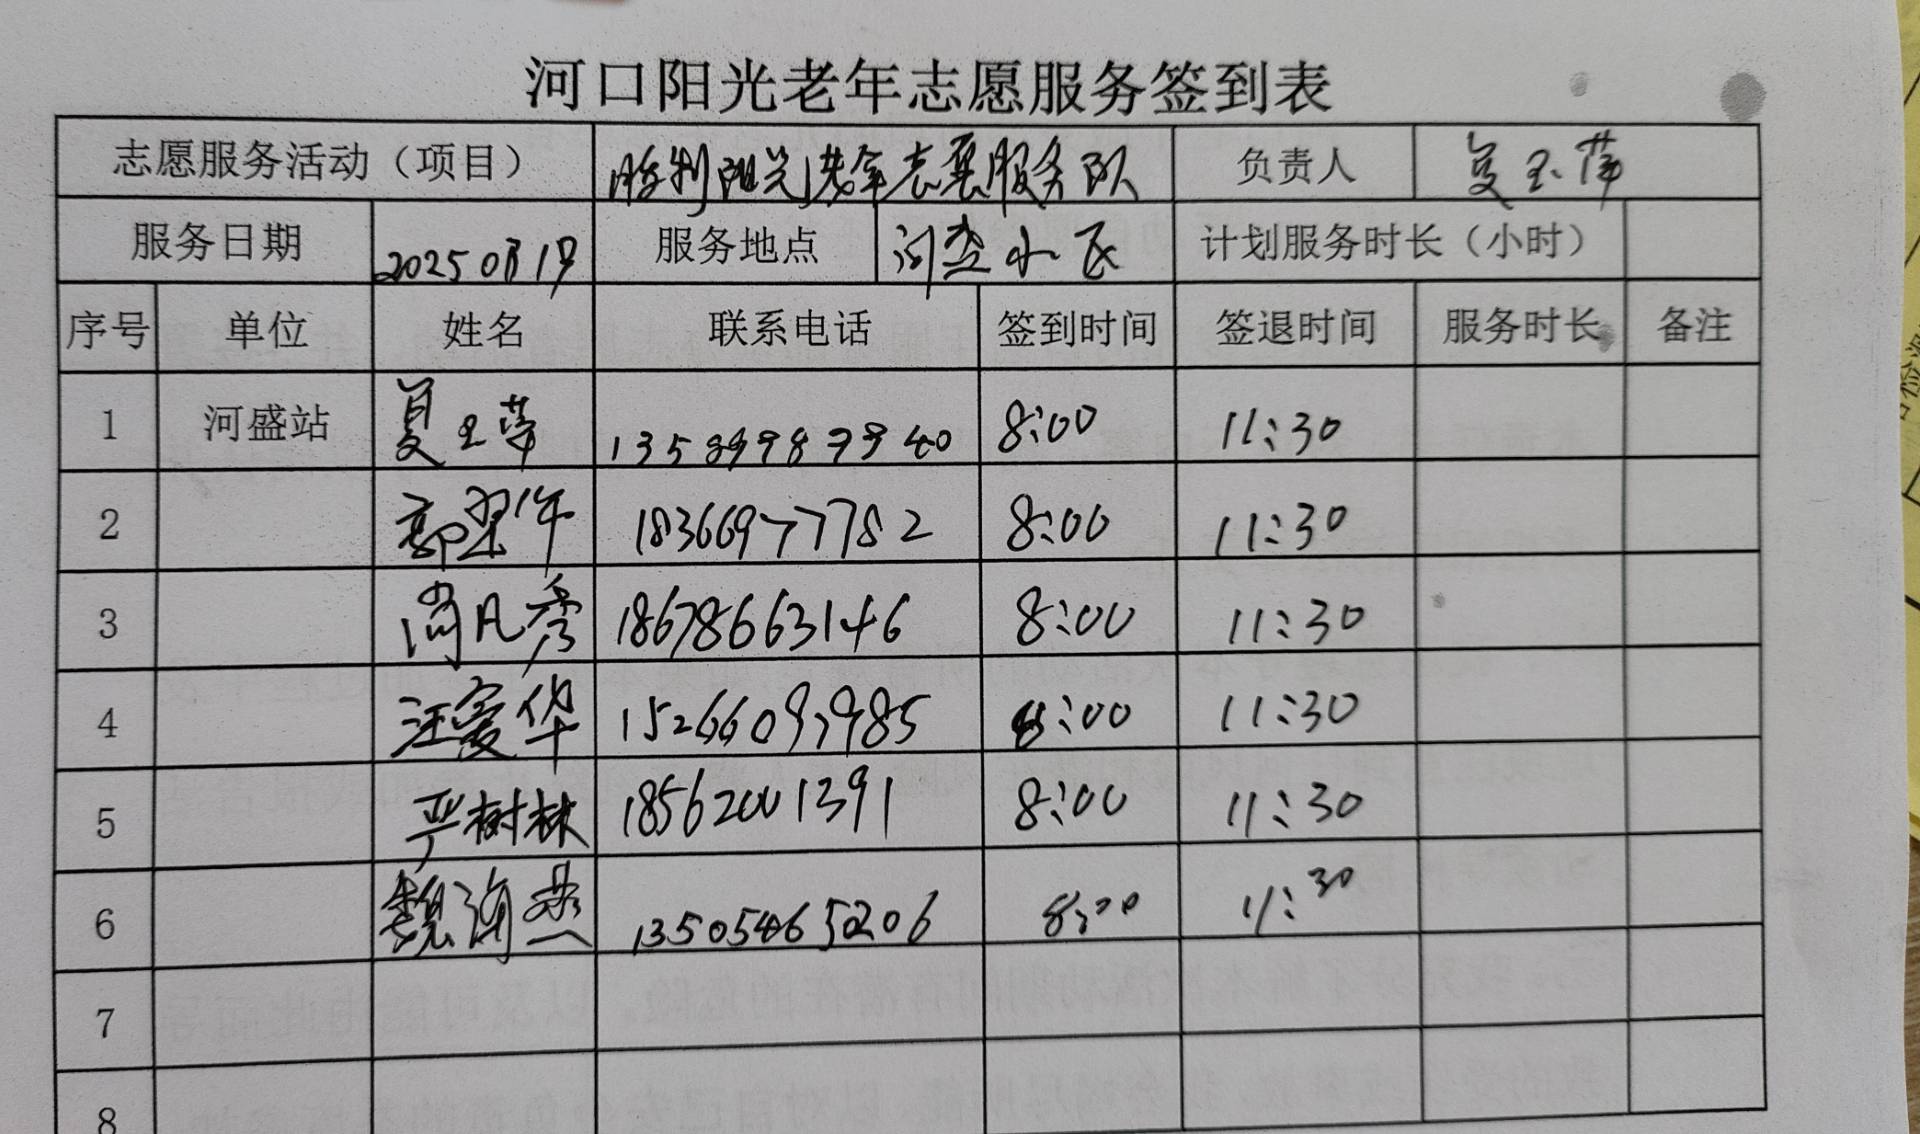 河口阳光老年志愿服务签到表
志愿服务活动（项目） 胜利阳光老年志愿服务队 负责人 夏玉萍
服务日期 服务地点 小区 计划服务时长（小时）
序号 单位 姓名 联系电话 签到时间 签退时间 服务时长 备注
1 河盛站 夏玉萍 8:00 11:30
2 郭翠华 18366977782 8:00 11:30
3 尚凡秀 18678663146 8:00 11:30
4 汪爱华 15266097985 8:00 11:30
5 严树林 18562001391 8:00 11:30
6 魏海燕 13505465206 8:00 11:30
7
8